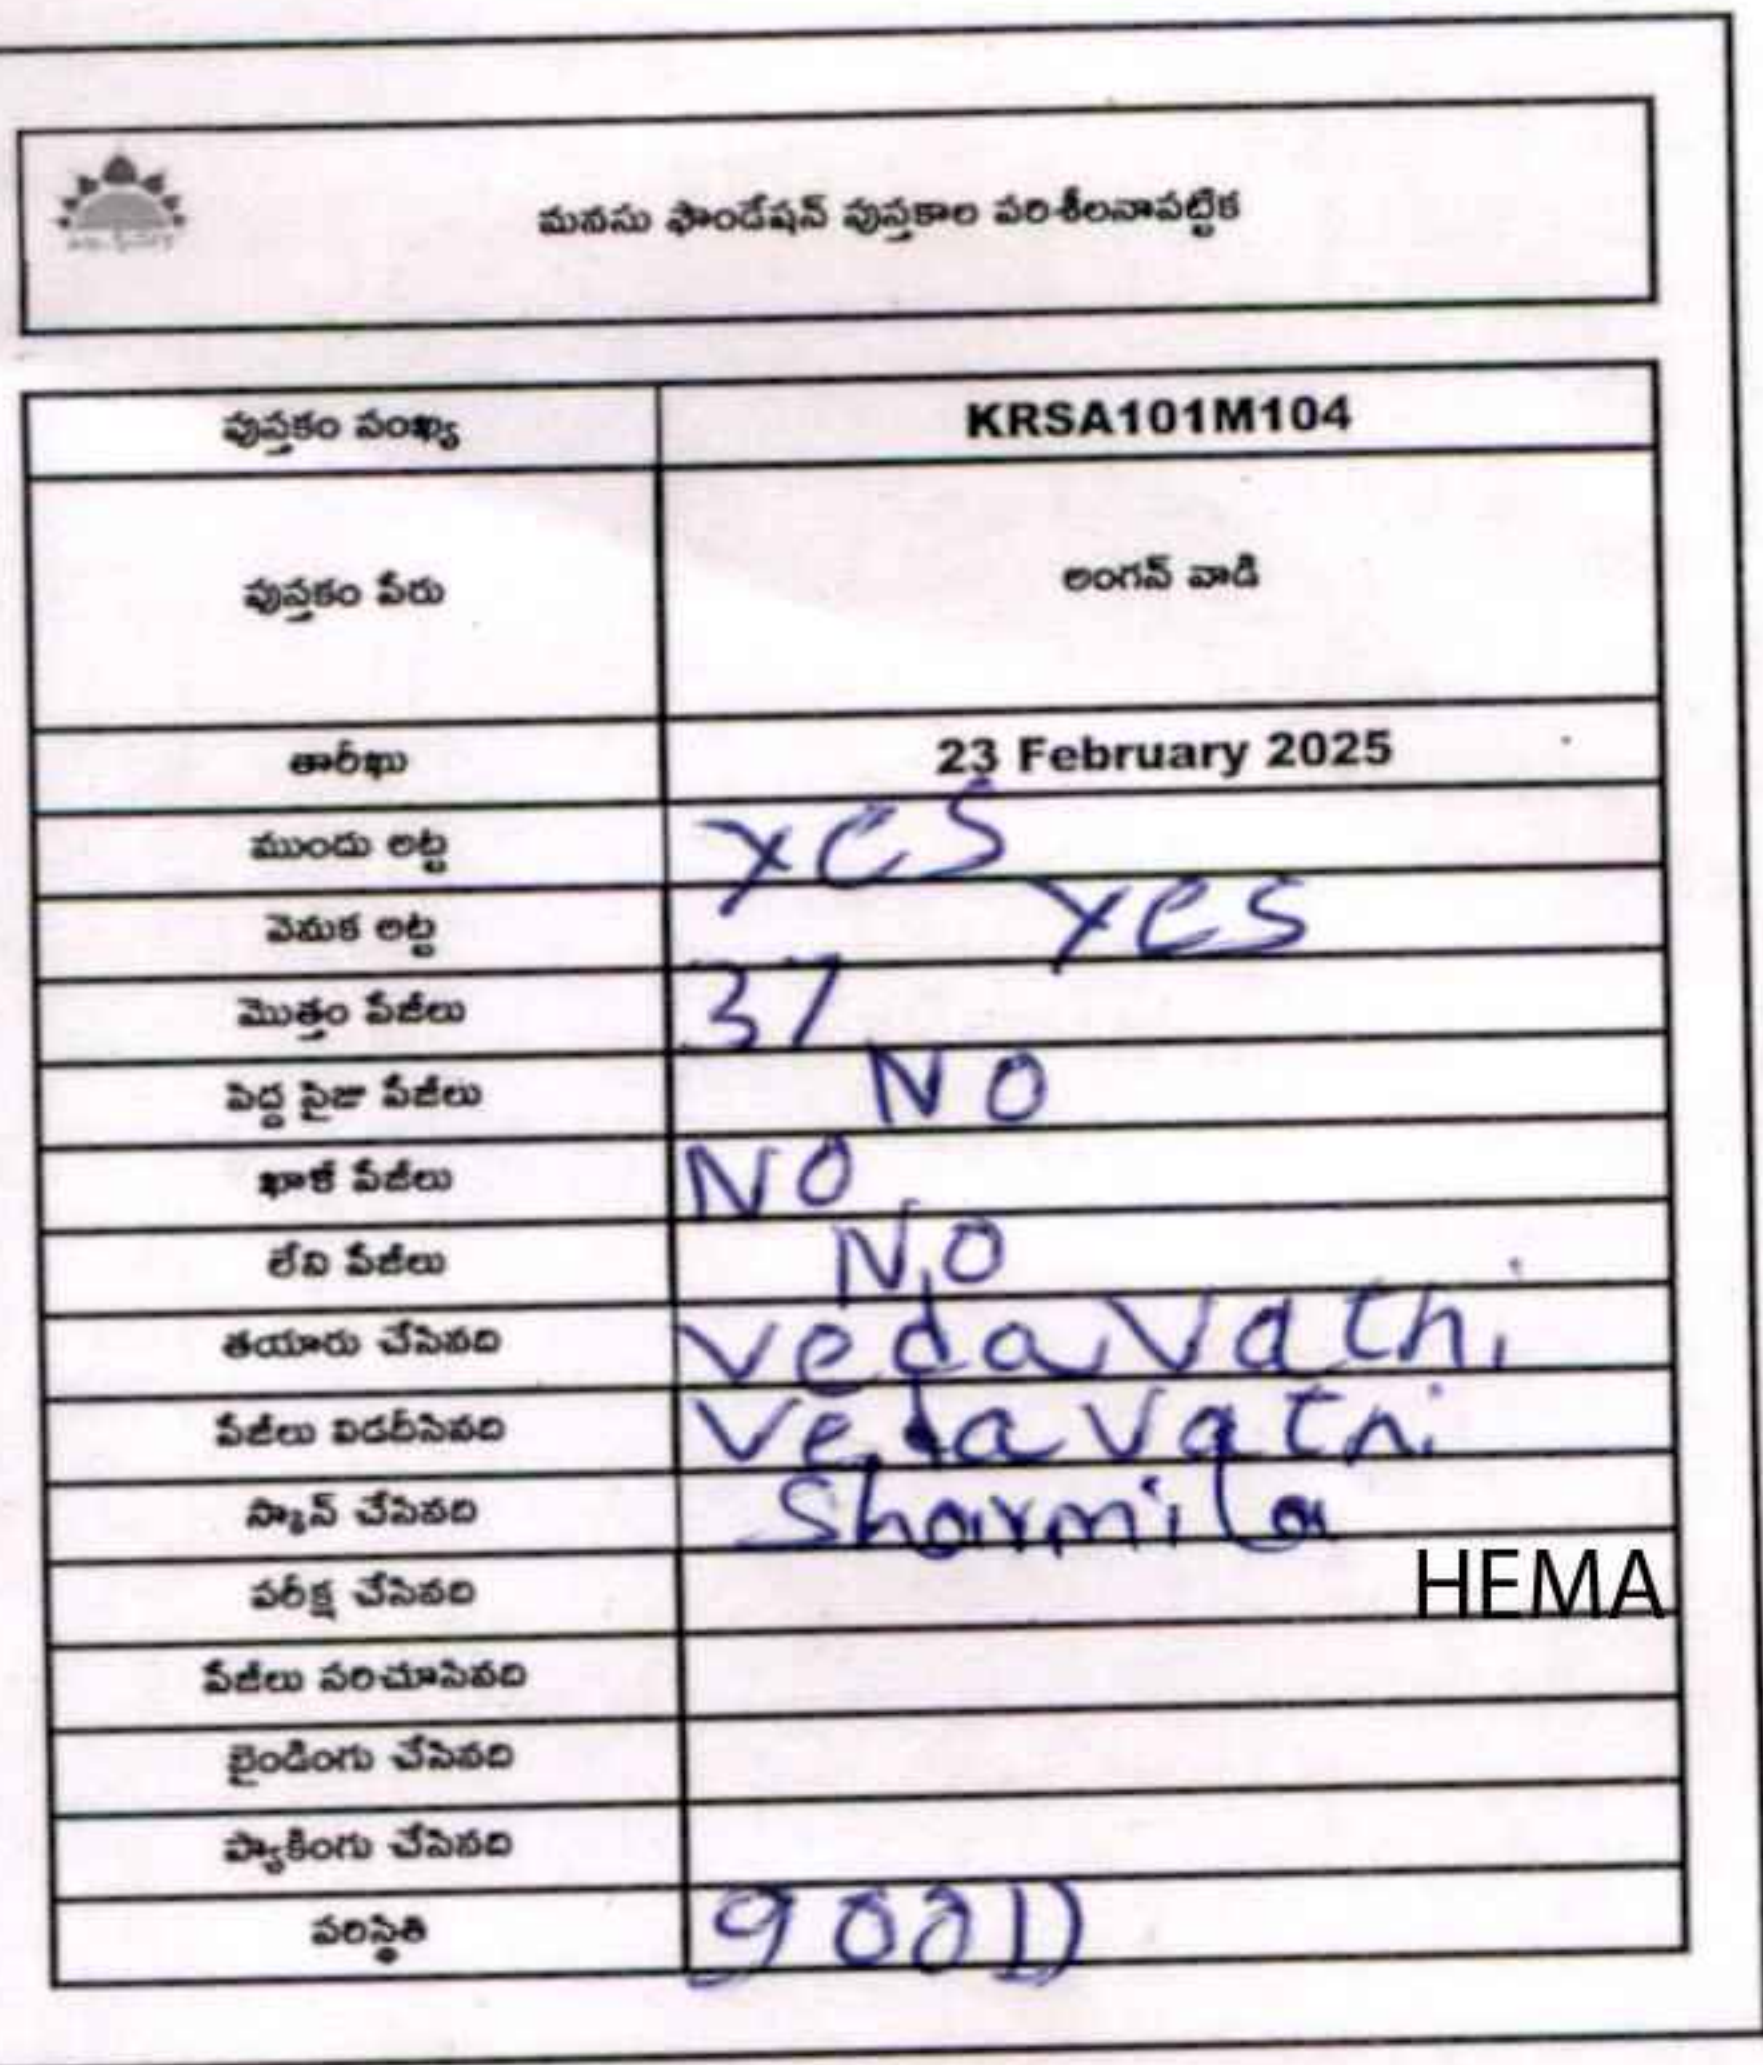 మనసు ఫౌండేషన్ పుస్తకాల పరిశీలనాపట్టిక
పుస్తకం సంఖ్య KRSA101M104
పుస్తకం పేరు అంగన్ వాడి
తారీఖు 23 February 2025
ముందు అట్ట Yes
వెనుక అట్ట Yes
మొత్తం పేజీలు 37
పెద్ద సైజు పేజీలు NO
ఖాళీ పేజీలు NO
లేని పేజీలు NO
తయారు చేసినది vedavathi
పేజీలు విడదీసినది vedavathi
స్కాన్ చేసినది Sharmila
పరీక్ష చేసినది HEMA
పేజీలు సరిచూసినది
బైండింగు చేసినది
ప్యాకింగు చేసినది
పరిస్థితి gooD